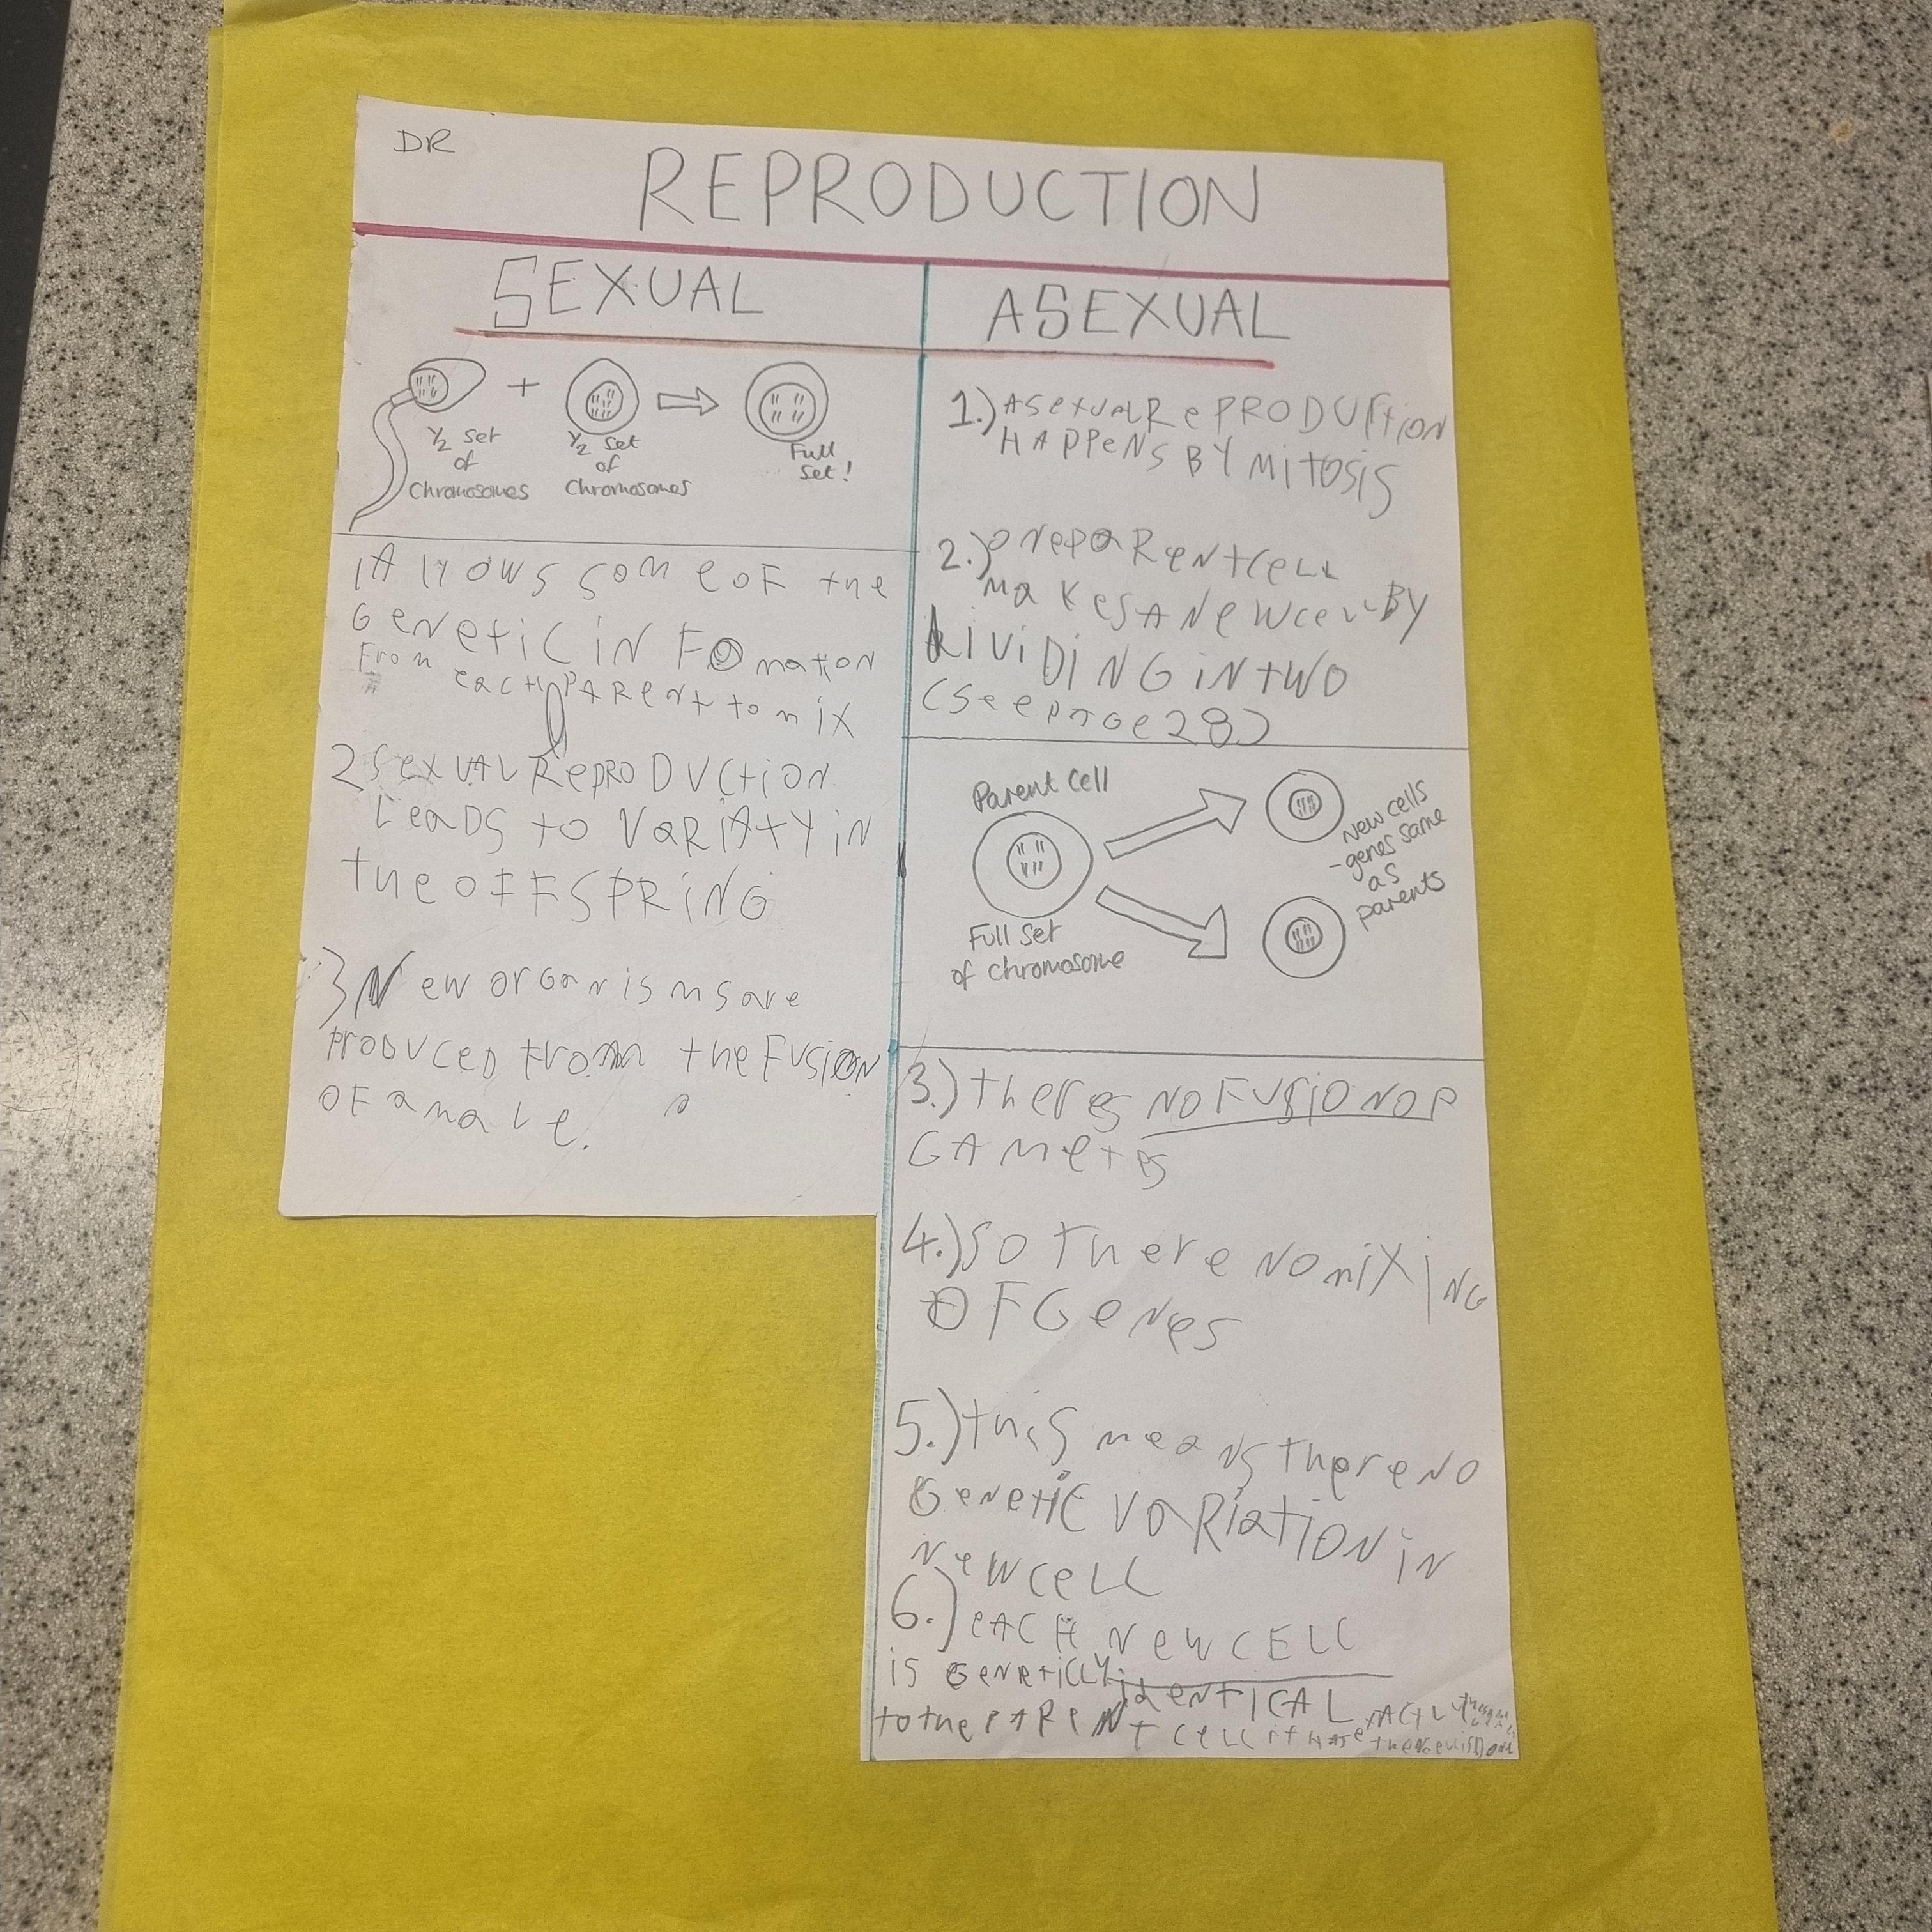 DR
REPRODUCTION
SEXUAL
+
1/2 set
of
Chromosomes
1/2 set
of
Chromosomes
Full
Set!
1 Allows some of the
Genetic in Fomation
From each PARENT to mix
2 Sexual RePRODUCtion
Leads to VaRiAty in
the OFFSPRiNG
3 New organisms are
PRODUCED from the FUSiON
OF a male.
ASEXUAL
1.) Asexual RePRODUCtion
HAPPeNS BY MitOSiS
2.) One paRent cell
makes A New cell BY
DiViDiNG iN tWO
(see page 28)
Parent Cell
Full Set
of Chromosome
New cells
-genes same
as
parents
3.) theres NO FUSiON OF
GAMetes
4.) So there NO miXiNG
OF Genes
5.) this means there NO
Genetic VaRiatiON iN
New cell
6.) eACH New CELL
is GeneticLY identiCAL
to the PAReNt cell it